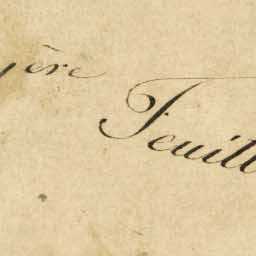 ère
Feuill